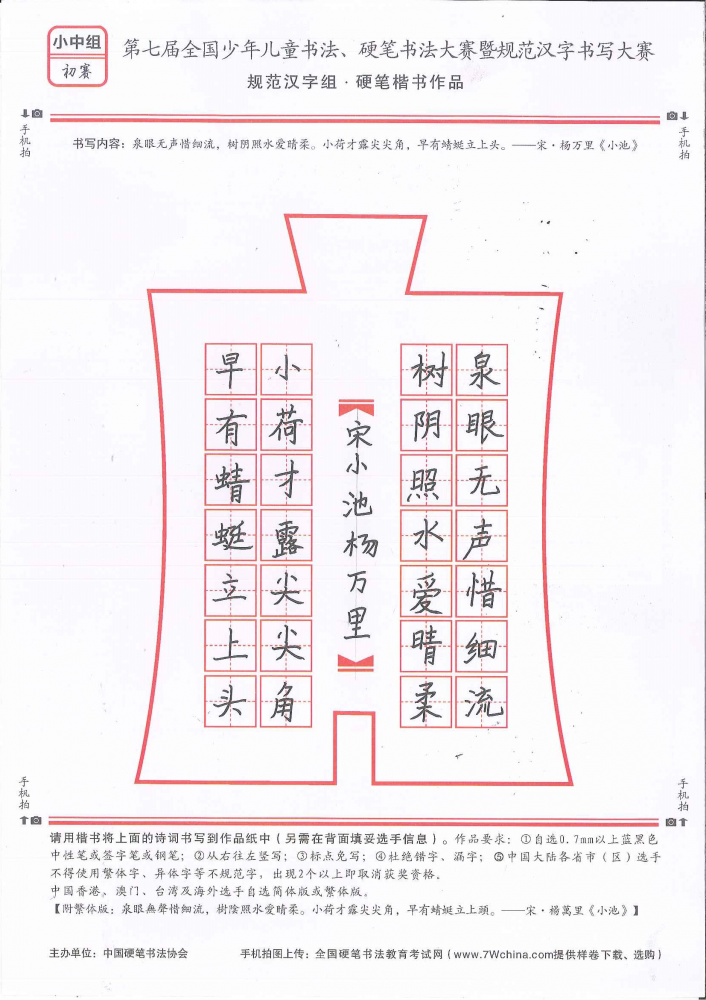 小中组
初赛
第七届全国少年儿童书法、硬笔书法大赛暨规范汉字书写大赛
规范汉字组·硬笔楷书作品
手机拍
手机拍
书写内容：泉眼无声惜细流，树阴照水爱晴柔。小荷才露尖尖角，早有蜻蜓立上头。——宋·杨万里《小池》
泉眼无声惜细流
树阴照水爱晴柔
宋小池杨万里
小荷才露尖尖角
早有蜻蜓立上头
手机拍
手机拍
请用楷书将上面的诗词书写到作品纸中（另需在背面填妥选手信息）。作品要求：①自选0.7mm以上蓝黑色
中性笔或签字笔或钢笔；②从右往左竖写；③标点免写；④杜绝错字、漏字；⑤中国大陆各省市（区）选手
不得使用繁体字、异体字等不规范字，出现2个以上即取消获奖资格。
中国香港、澳门、台湾及海外选手自选简体版或繁体版。
【附繁体版：泉眼無聲惜細流，樹陰照水愛晴柔。小荷才露尖尖角，早有蜻蜓立上頭。——宋·楊萬里《小池》】
主办单位：中国硬笔书法协会 手机拍图上传：全国硬笔书法教育考试网（www.7Wchina.com提供样卷下载、选购）